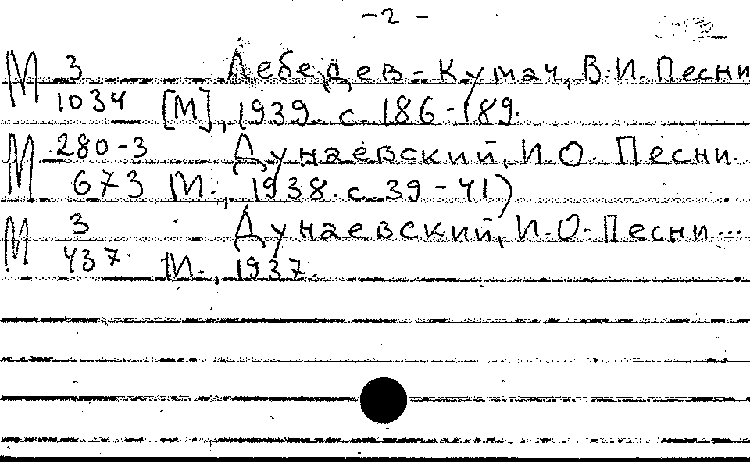 - 2 -
М 3 Лебедев-Кумач, В.И. Песни
1034 [М], 1939. с. 186-189.
М 280-3 Дунаевский, И.О. Песни
673 М., 1938. с. 39-41)
М 3 Дунаевский, И.О. Песни...
437. М., 1937.